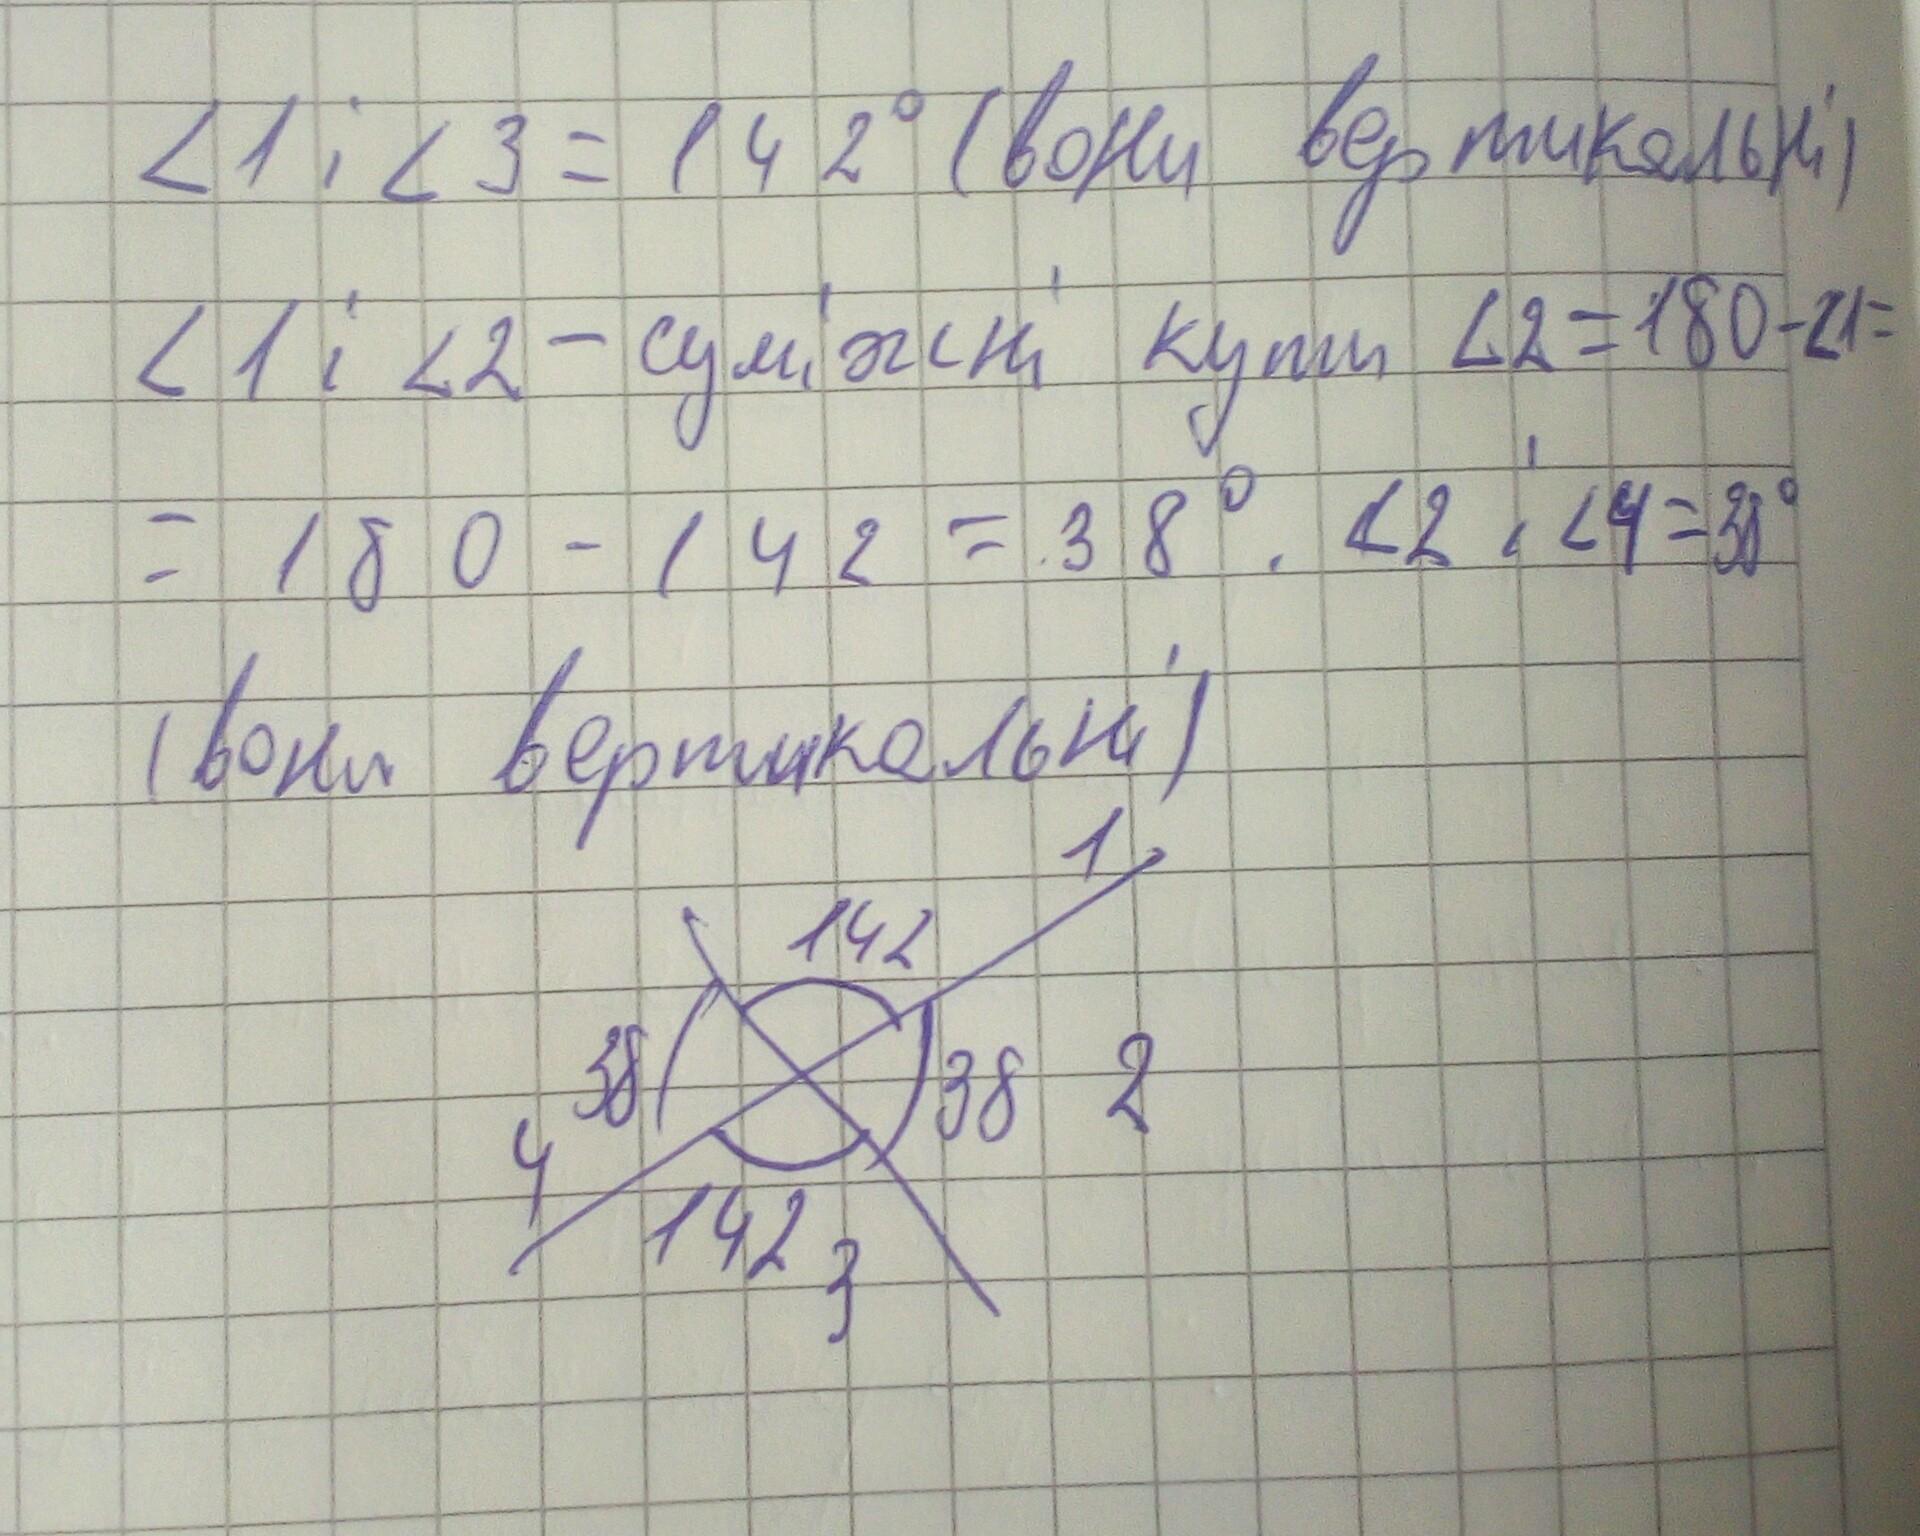 <1 і <3 = 142° (вони вертикальні)
<1 і <2 – суміжні кути <2 = 180 - <1 =
= 180 - 142 = 38°. <2 і <4 = 38°
(вони вертикальні)
1
142
38
38 2
4
142
3